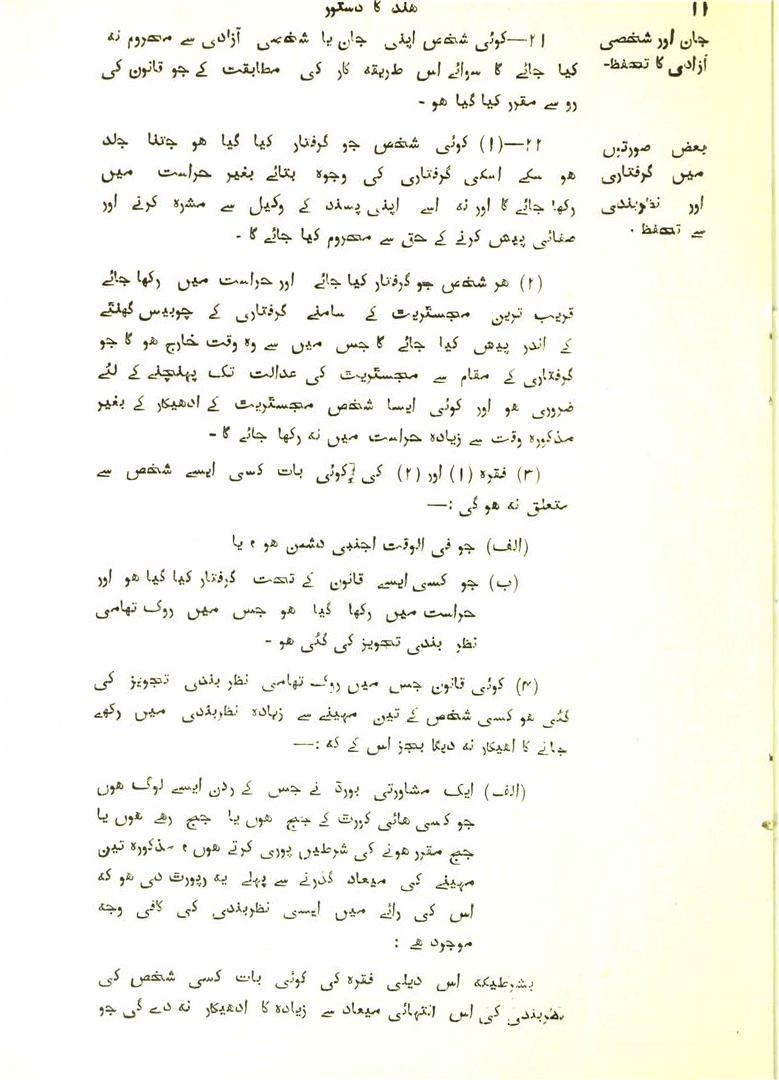 ہند کا دستور
۱۱
جان اور شخصی
آزادی کا تحفظ۔
۲۱—کوئی شخص اپنی جان یا شخصی آزادی سے محروم نہ
کیا جائے گا سوائے اس طریقہ کار کی مطابقت کے جو قانون کی
رو سے مقرر کیا گیا ہو ۔
بعض صورتوں
میں گرفتاری
اور نظربندی
سے تحفظ ۔
۲۲—(۱) کوئی شخص جو گرفتار کیا گیا ہو جتنا جلد
ہو سکے اسکی گرفتاری کی وجوہ بتائے بغیر حراست میں
رکھا جائے گا اور نہ اسے اپنی پسند کے وکیل سے مشرہ کرنے اور
صفائی پیش کرنے کے حق سے محروم کیا جائے گا ۔
(۲) ہر شخص جو گرفتار کیا جائے اور حراست میں رکھا جائے
قریب ترین مجسٹریٹ کے سامنے گرفتاری کے چوبیس گھنٹے
کے اندر پیش کیا جائے گا جس میں سے وہ وقت خارج ہو گا جو
گرفتاری کے مقام سے مجسٹریٹ کی عدالت تک پہنچنے کے لئے
ضروری ہو اور کوئی ایسا شخص مجسٹریٹ کے ادھیکار کے بغیر
مذکورہ وقت سے زیادہ حراست میں نہ رکھا جائے گا ۔
(۳) فقرہ (۱) اور (۲) کی کوئی بات کسی ایسے شخص سے
متعلق نہ ہو گی :—
(الف) جو فی الوقت اجنبی دشمن ہو ، یا
(ب) جو کسی ایسے قانون کے تحت گرفتار کیا گیا ہو اور
حراست میں رکھا گیا ہو جس میں روک تھامی
نظر بندی تجویز کی گئی ہو ۔
(۴) کوئی قانون جس میں روک تھامی نظر بندی تجویز کی
گئی ہو کسی شخص کے تین مہینے سے زیادہ نظربندی میں رکھے
جانے کا ادھیکار نہ دیگا بجز اس کے کہ :—
(الف) ایک مشاورتی بورڈ نے جس کے ردن ایسے لوگ ہوں
جو کسی ہائی کورٹ کے جج ہوں یا جج رہے ہوں یا
جج مقرر ہونے کی شرطیں پوری کرتے ہوں ، مذکورہ تین
مہینے کی میعاد گذرنے سے پہلے یہ رپورٹ دی ہو کہ
اس کی رائے میں ایسی نظربندی کی کافی وجہ
موجود ہے :
بشرطیکہ اس ذیلی فقرہ کی کوئی بات کسی شخص کی
نظربندی کی اس انتہائی میعاد سے زیادہ کا ادھیکار نہ دے گی جو